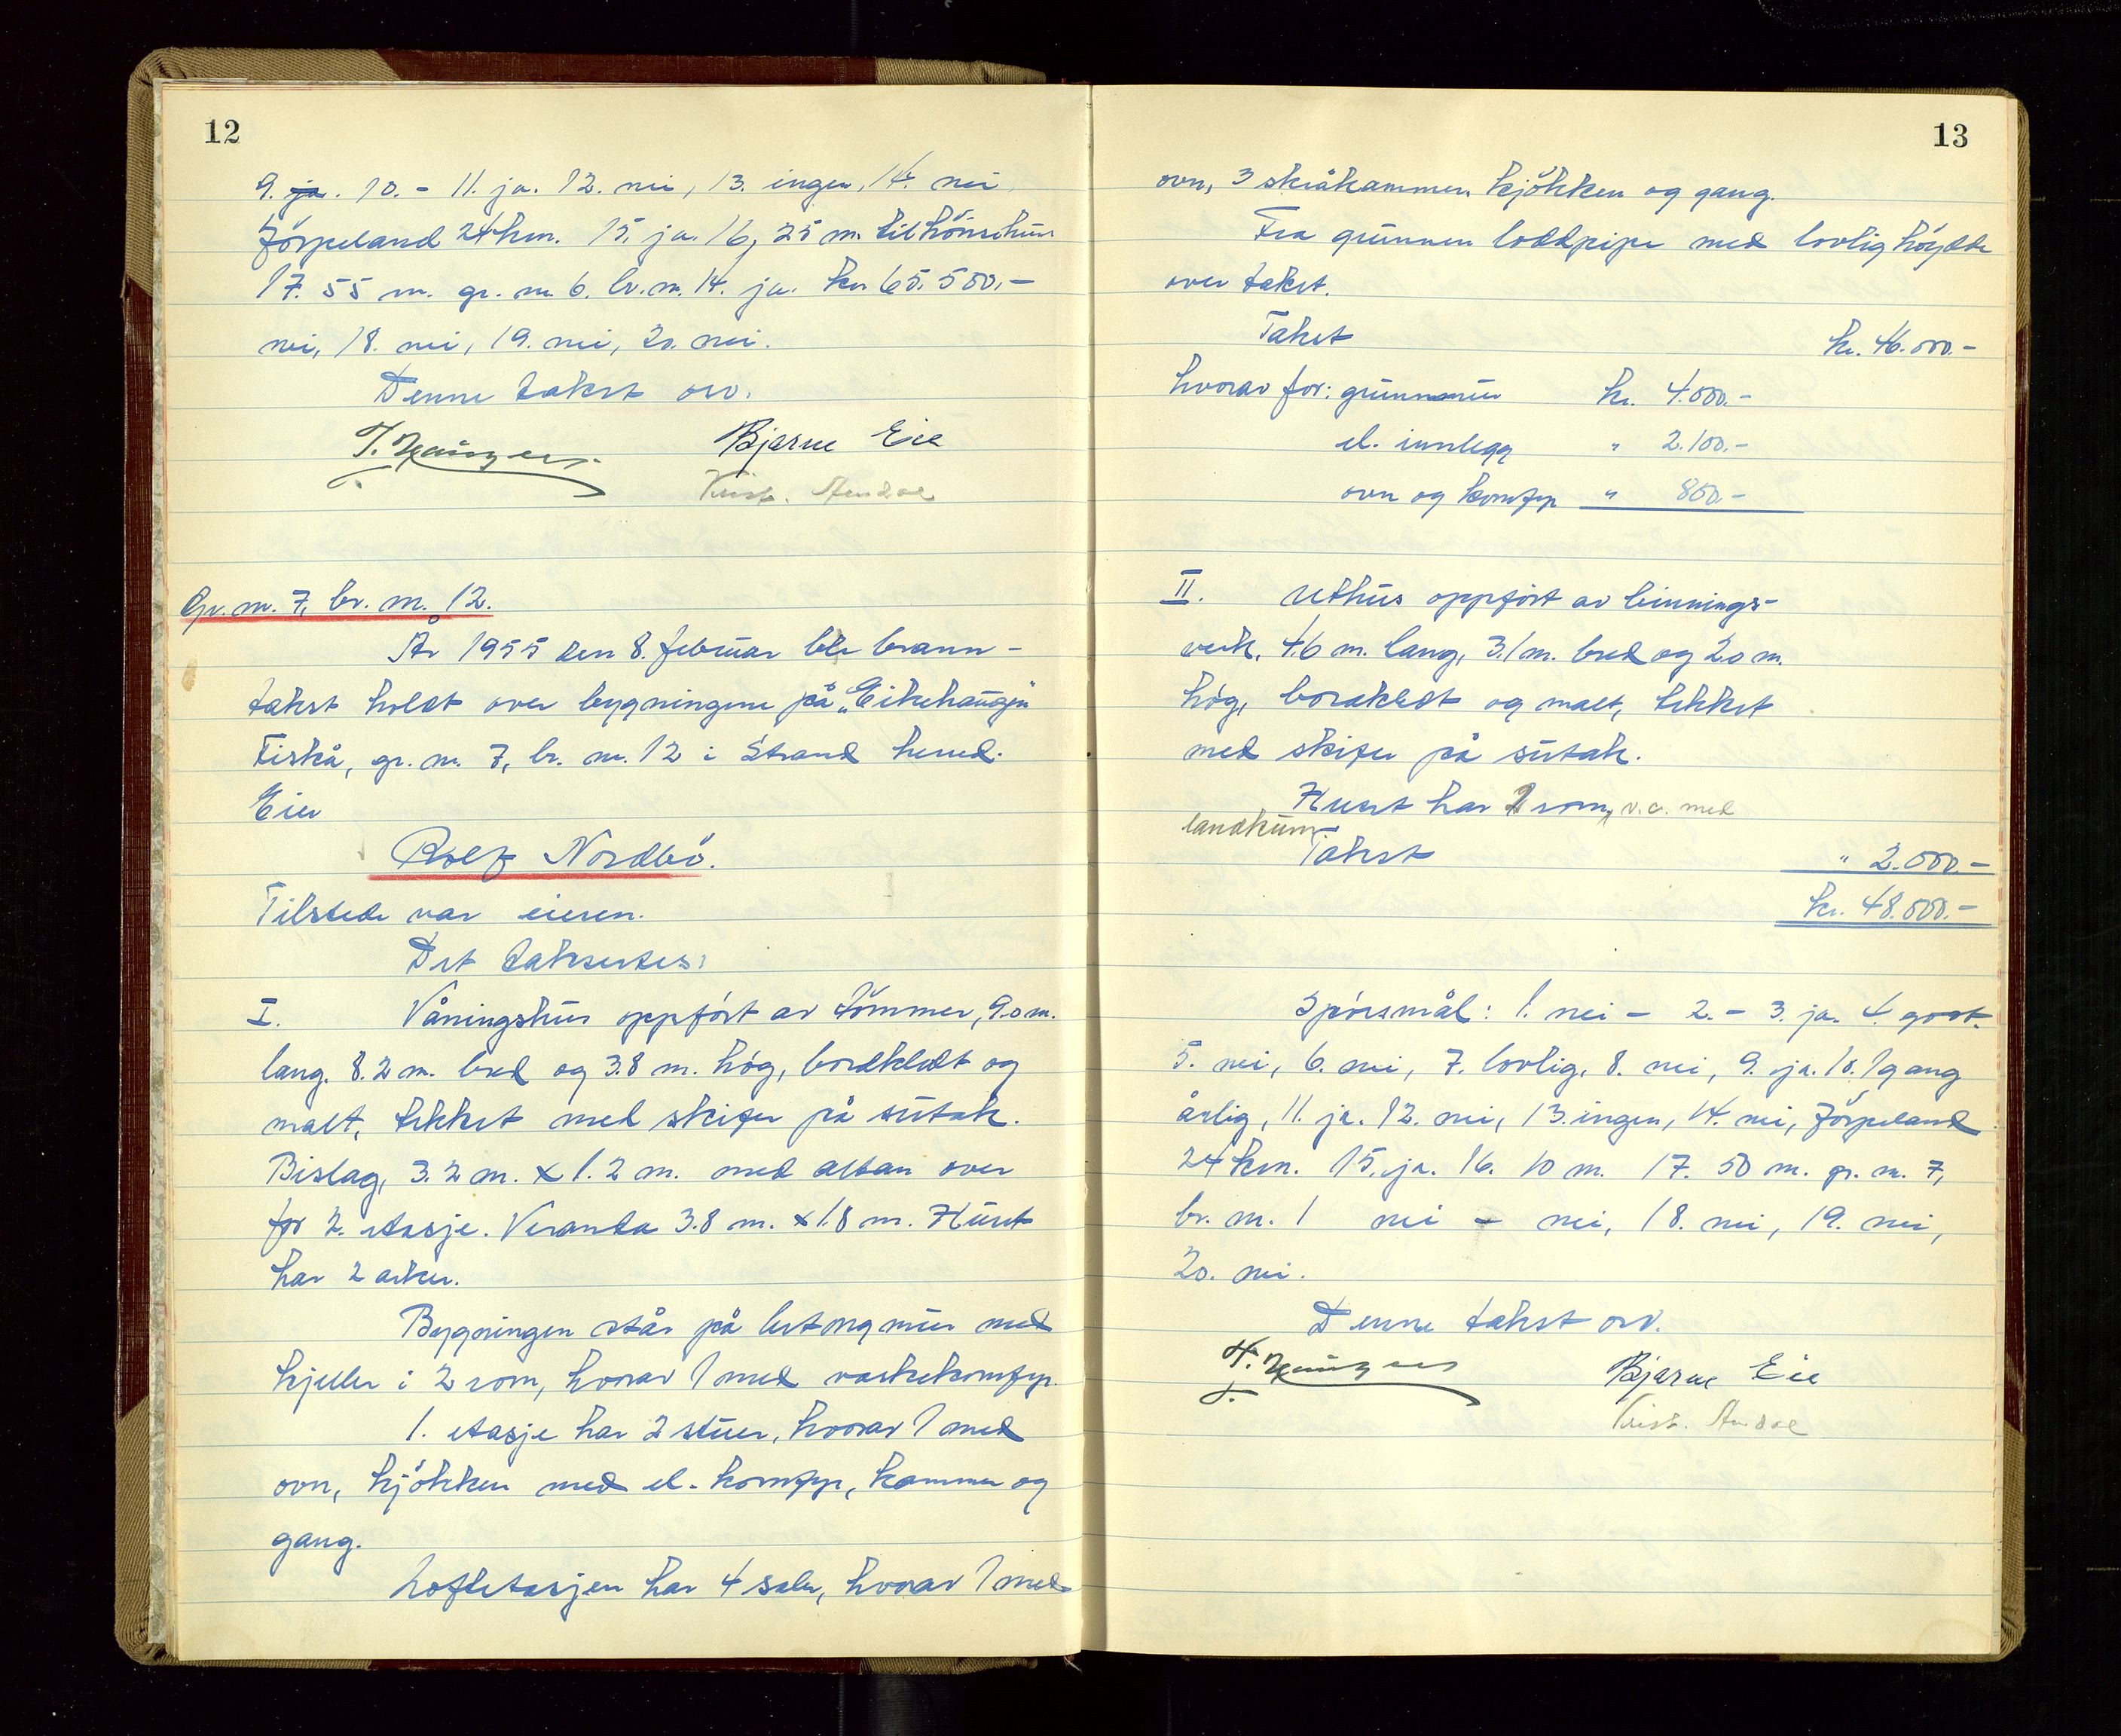 12
9. ja. 10. - 11. ja. 12. nei, 13. ingen, 14. nei,
Jörpeland 24 km. 15. ja. 16, 25 m. til hönsehus
17. 55 m. gr. n. 6. br. n. 14. ja. kr. 65.500.-
nei, 18. nei, 19. nei, 20. nei.
Denne takst osv.
Bjarne Eie
Krist.
Gr. n. 7, br. n. 12.
År 1955 den 8. februar ble brann-
takst holdt over bygningene på "Eikehaugen"
Fiskå, gr. n. 7, br. n. 12 i Strand herred.
Eier
Rolf Nordbö.
Tilstede var eieren.
Det takseres:
I. Våningshus oppfört av tömmer, 9.0 m.
lang. 8.2 m. bred og 3.8 m. hög, bordkledt og
malt, tekket med skifer på sutak.
Bislag, 3.2 m. x 1.2 m. med altan over
for 2. etasje. Veranda 3.8 m. x 1.8 m. Huset
har 2 arker.
Bygningen står på betongmur med
kjeller i 2 rom, hvorav 1 med vaskekomfyr.
1. etasje har 2 stuer, hvorav 1 med
ovn, kjökken med el. komfyr, kammer og
gang.
Loftetasjen har 4 saler, hvorav 1 med
13
ovn, 3 skråkammer, kjökken og gang.
Fra grunnen loddpipe med lovlig höyde
over taket.
Takst kr. 46.000.-
hvorav for: grunnmur kr. 4.000.-
el. innlegg " 2.100.-
ovn og komfyr " 800.-
II. Uthus oppfört av binnings-
verk, 4.6 m. lang, 3.1 m. bred og 2.0 m.
hög, bordkledt og malt, tekket
med skifer på sutak.
Huset har 2 rom, v.c. med
landkum.
Takst " 2.000.-
kr. 48.000.-
Spörsmål: 1. nei - 2. - 3. ja. 4. godt.
5. nei, 6. nei, 7. lovlig. 8. nei, 9. ja. 10. 1 gang
årlig, 11. ja. 12. nei, 13. ingen, 14. nei, Jörpeland
24 km. 15. ja. 16. 10 m. 17. 50 m. gr. n. 7,
br. n. 1 nei - nei, 18. nei, 19. nei,
20. nei.
Denne takst osv.
Bjarne Eie
Krist.